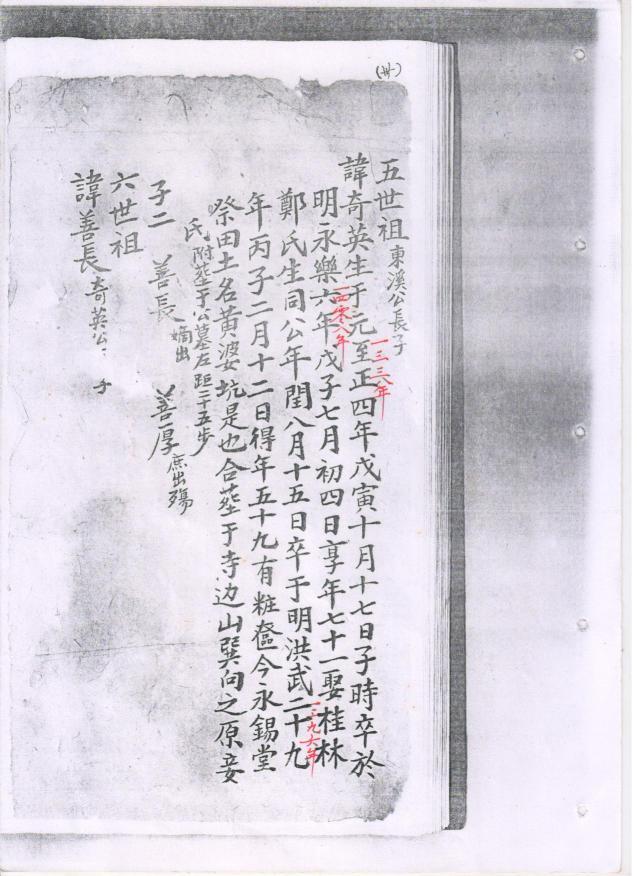 (卅)
五世祖 東溪公長子
諱奇英生于元至正四年戊寅十月十七日子時卒於
一三三八年
明永樂六年戊子七月初四日享年七十一娶桂林
一四零八年
鄭氏生同公年閏八月十五日卒于明洪武二十九
一三九六年
年丙子二月十二日得年五十九有粧奩今永錫堂
祭田土名黄婆坑是也合葬于寺边山巽向之原妾
氏附葬于公墓左距二十五步
子二 善長 嫡出 善厚 庶出殤
六世祖
諱善長 奇英公 子